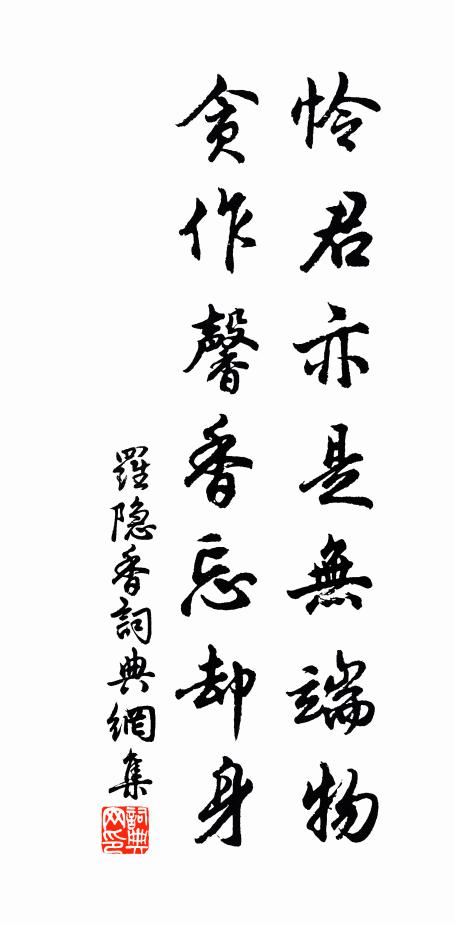 怜君亦是無端物
貪作馨香忘却身
羅隐香詞典網集
詞典網印